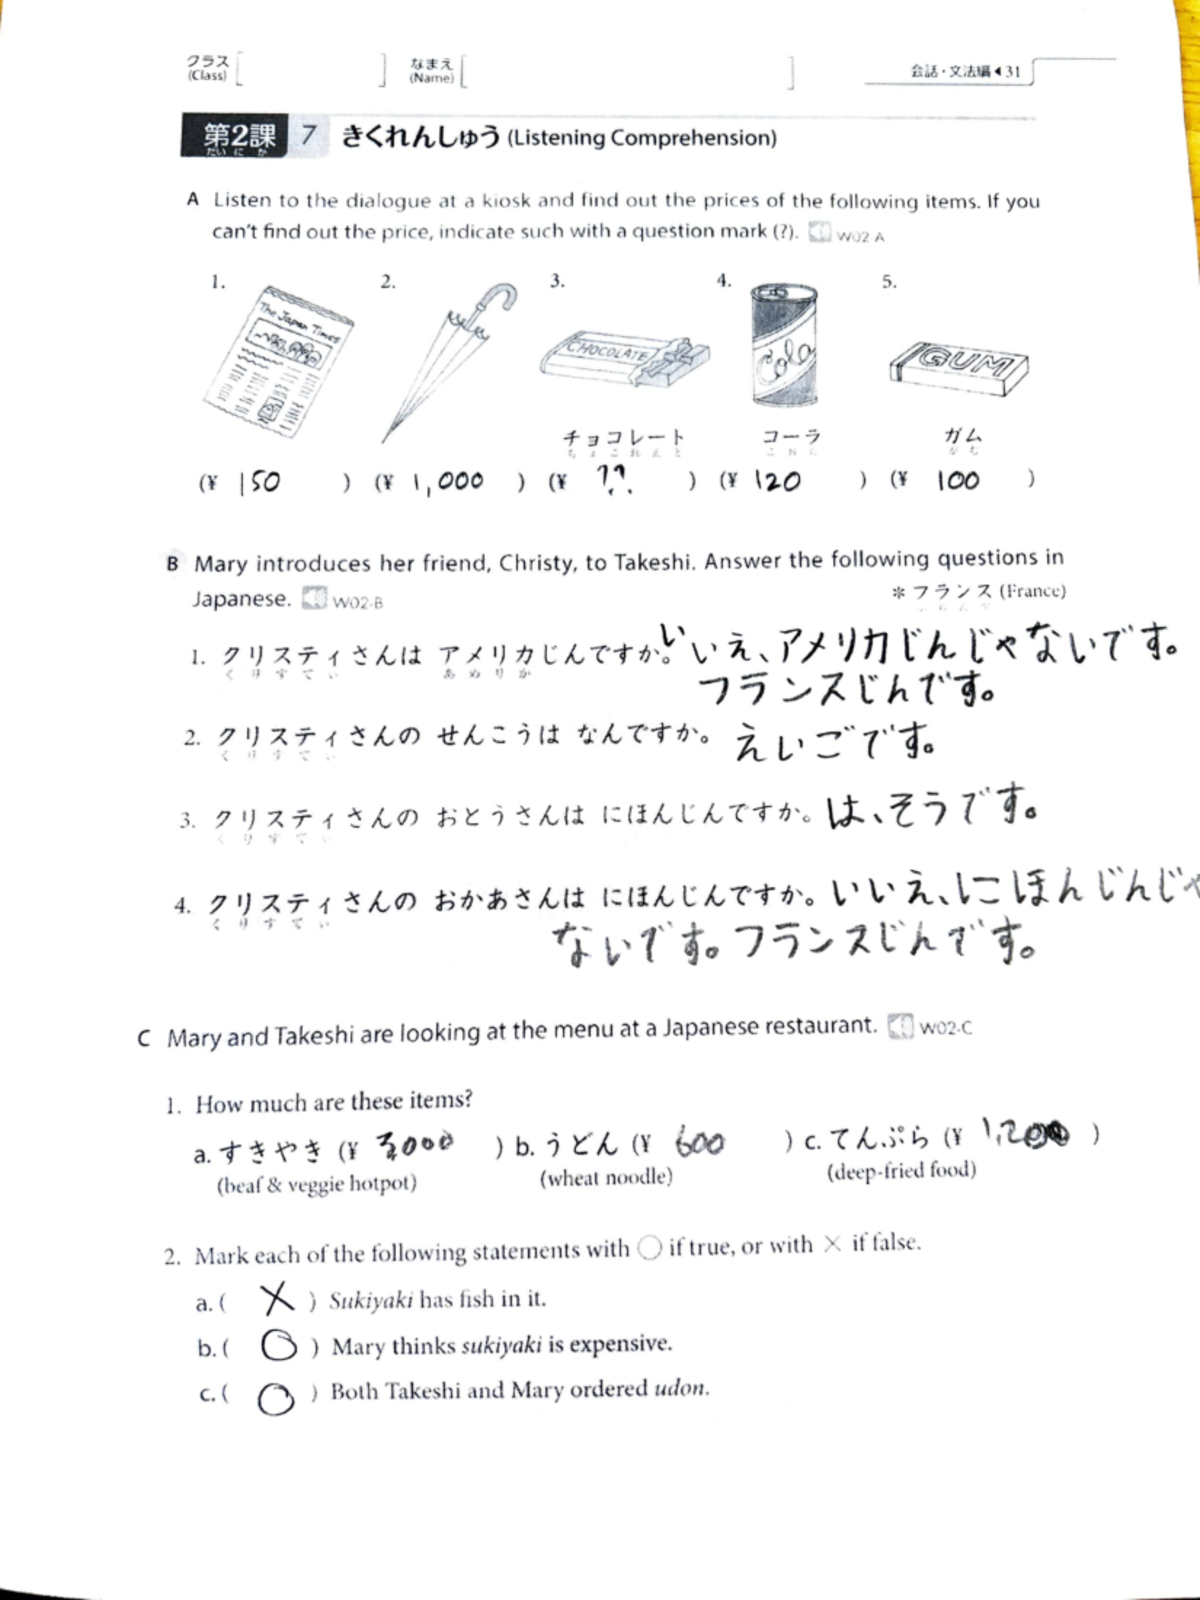 クラス
(Class)
なまえ
(Name)
会話・文法編◀31
第2課 7 きくれんしゅう (Listening Comprehension)
だい に か
A Listen to the dialogue at a kiosk and find out the prices of the following items. If you
can't find out the price, indicate such with a question mark (?). W02-A
1. 2. 3. 4. 5.
The Japan Times
CHOCOLATE
Cola
GUM
チョコレート コーラ ガム
ちょこれえと こおら がむ
(¥ 150 ) (¥ 1,000 ) (¥ ?? ) (¥ 120 ) (¥ 100 )
B Mary introduces her friend, Christy, to Takeshi. Answer the following questions in
Japanese. W02-B
*フランス (France)
1. クリスティさんは アメリカじんですか。いいえ、アメリカじんじゃないです。
くりすてぃ あめりか
フランスじんです。
2. クリスティさんの せんこうは なんですか。 えいごです。
くりすてぃ
3. クリスティさんの おとうさんは にほんじんですか。は、そうです。
くりすてぃ
4. クリスティさんの おかあさんは にほんじんですか。いいえ、にほんじんじゃ
くりすてぃ
ないです。フランスじんです。
C Mary and Takeshi are looking at the menu at a Japanese restaurant. W02-C
1. How much are these items?
a. すきやき (¥ 3000 ) b. うどん (¥ 600 ) c. てんぷら (¥ 1,200 )
(beaf & veggie hotpot) (wheat noodle) (deep-fried food)
2. Mark each of the following statements with ○ if true, or with × if false.
a. ( × ) Sukiyaki has fish in it.
b. ( ○ ) Mary thinks sukiyaki is expensive.
c. ( ○ ) Both Takeshi and Mary ordered udon.